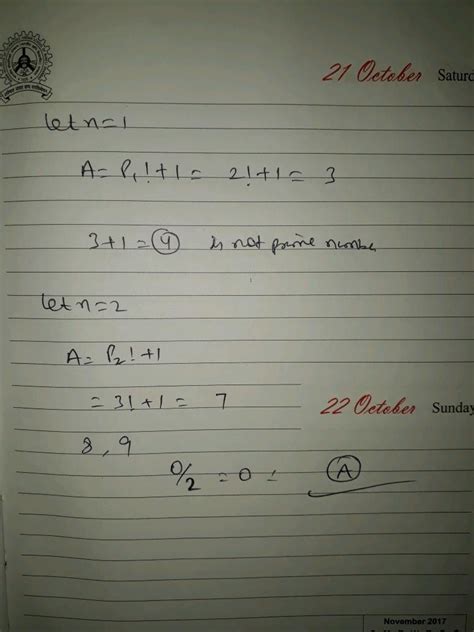 21 October Saturd
let n=1
A= P₁!+1= 2!+1= 3
3+1=④ is not prime number
let n=2
A= P₂!+1
= 3!+1= 7
22 October Sunday
8, 9
0/2 = 0 = Ⓐ
November 2017